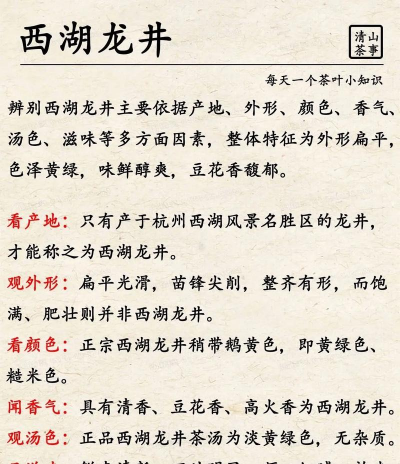 西湖龙井
清山
茶事
每天一个茶叶小知识
辨别西湖龙井主要依据产地、外形、颜色、香气、
汤色、滋味等多方面因素，整体特征为外形扁平，
色泽黄绿，味鲜醇爽，豆花香馥郁。
看产地：只有产于杭州西湖风景名胜区的龙井，
才能称之为西湖龙井。
观外形：扁平光滑，苗锋尖削，整齐有形，而饱
满、肥壮则并非西湖龙井。
看颜色：正宗西湖龙井稍带鹅黄色，即黄绿色、
糙米色。
闻香气：具有清香、豆花香、高火香为西湖龙井。
观汤色：正品西湖龙井茶汤为淡黄绿色，无杂质。